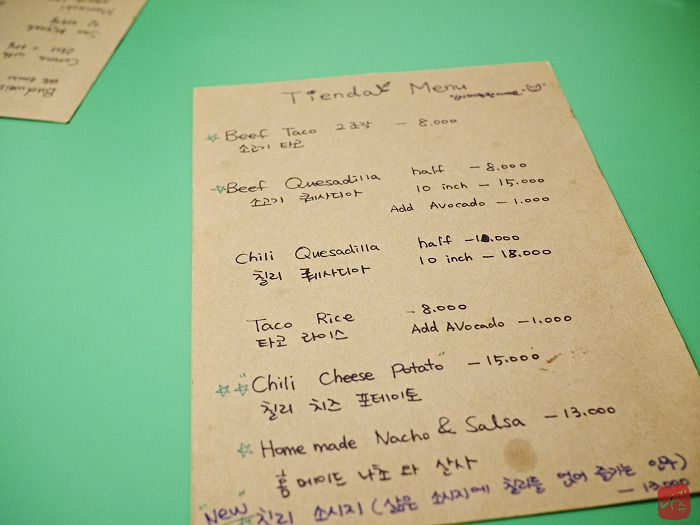 Tienda Menu
☆ Beef Taco 2조각 - 8.000
소고기 타코
☆ Beef Quesadilla half - 8.000
소고기 퀘사디아 10 inch - 15.000
Add Avocado - 1.000
Chili Quesadilla half - 10.000
칠리 퀘사디아 10 inch - 18.000
Taco Rice - 8.000
타코 라이스 Add Avocado - 1.000
☆☆ "Chili Cheese Potato" - 15.000
칠리 치즈 포테이토
☆ Home made Nacho & Salsa - 13.000
홈 메이드 나초 와 살사
"New"
☆ 칠리 소시지 (삶은 소시지에 칠리를 얹어 즐기는 안주)
- 13.000